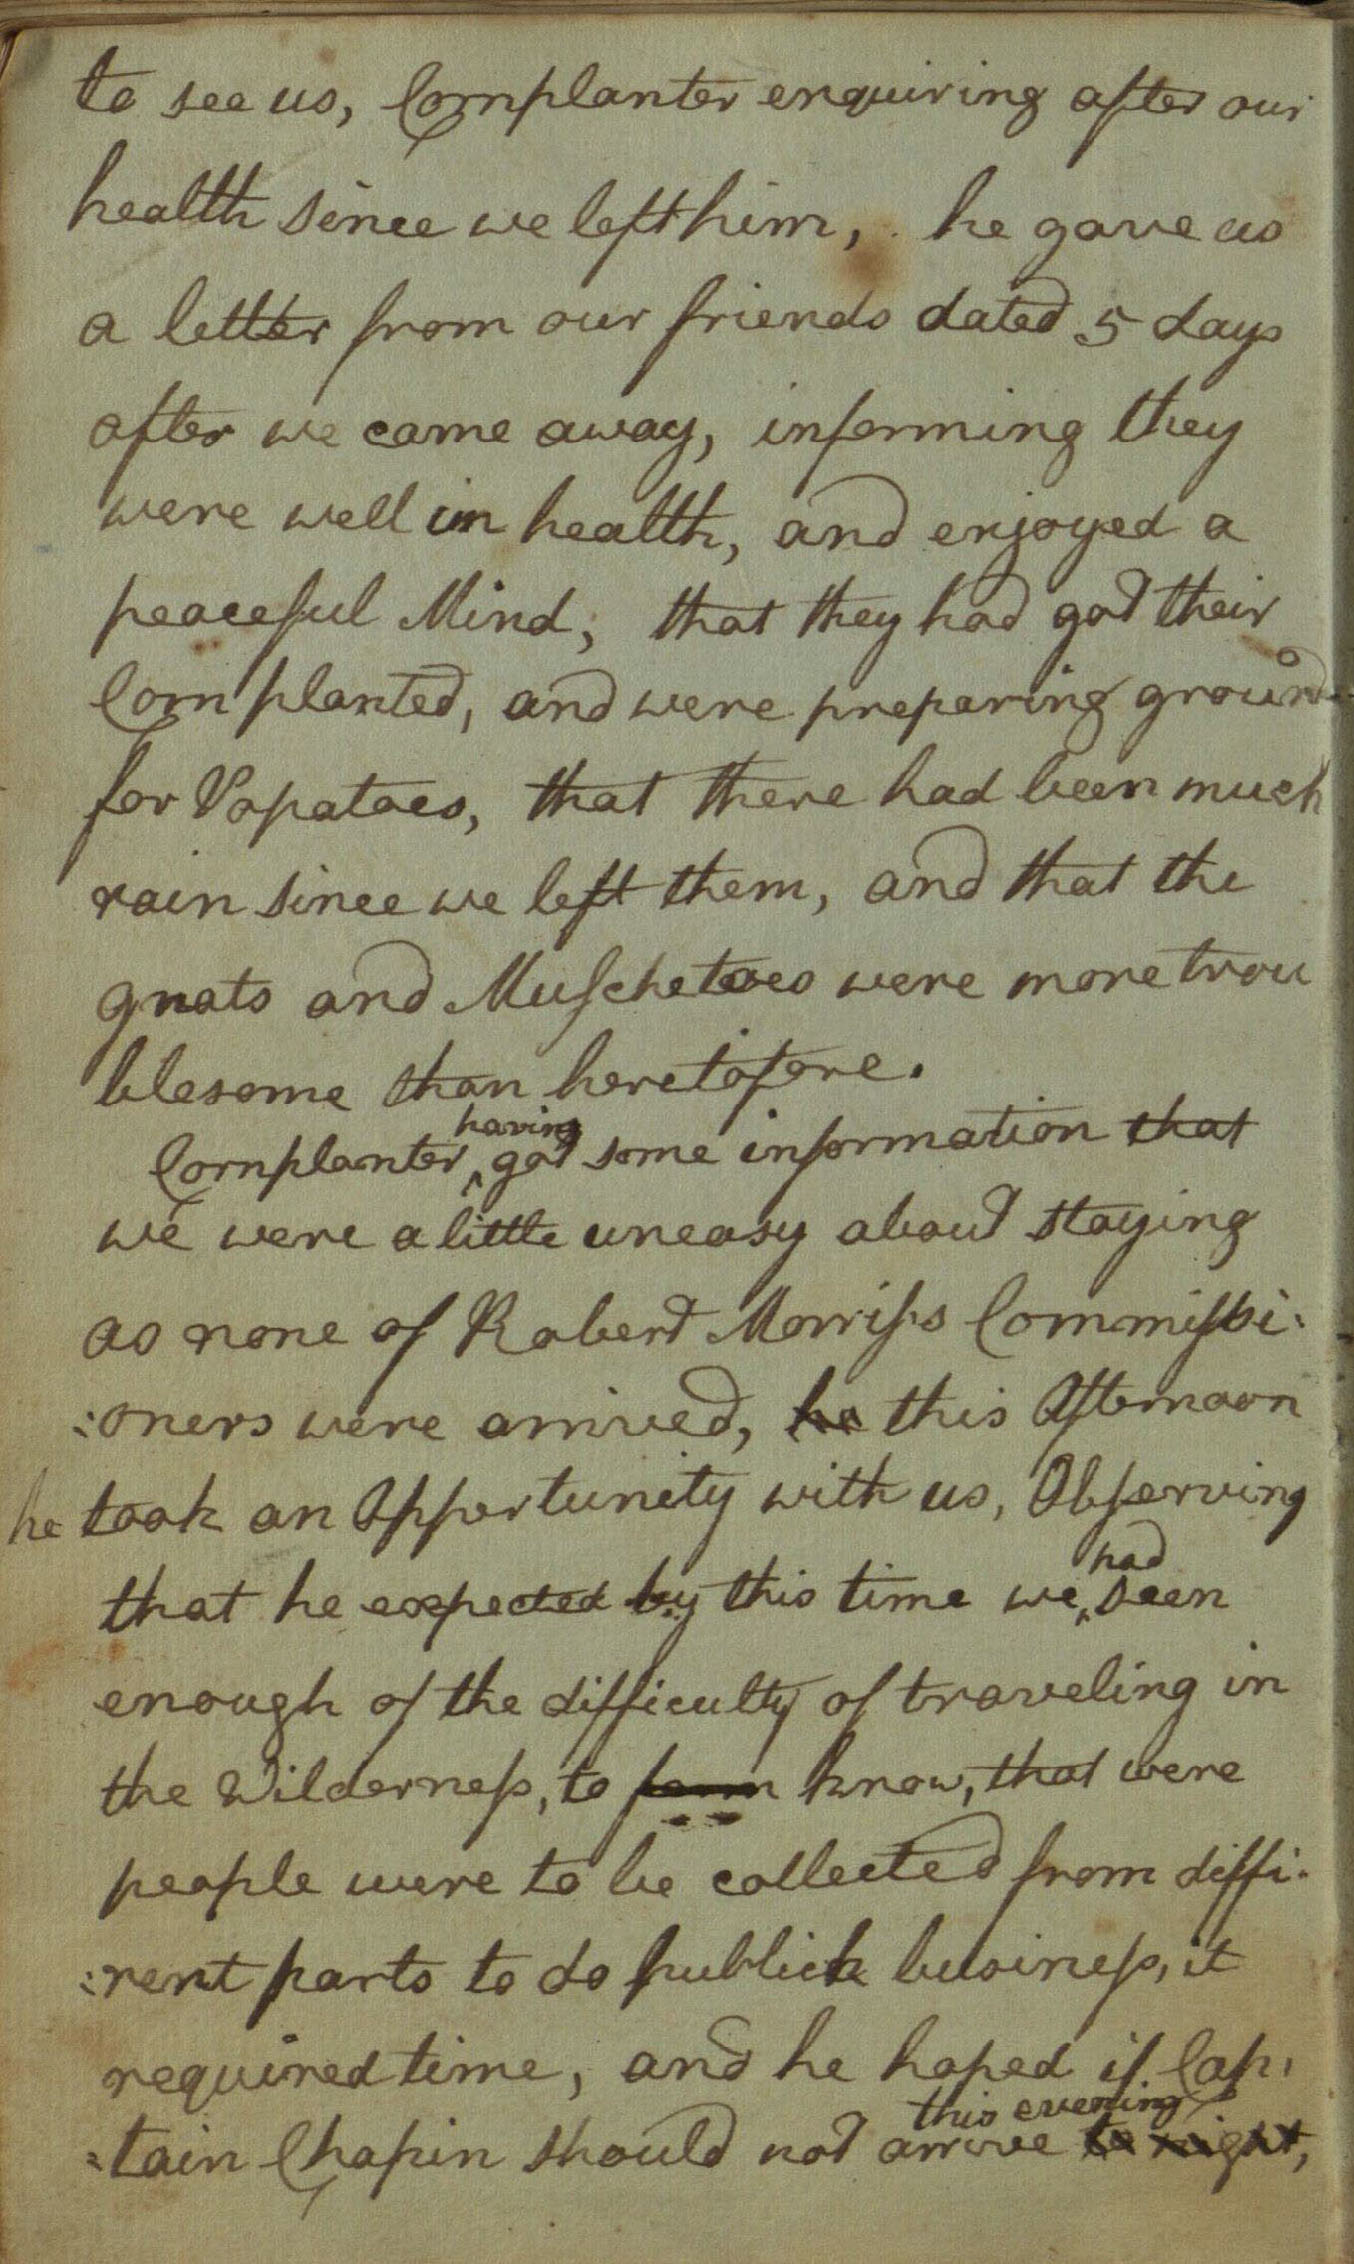 to see us, Cornplanter enquiring after our
health since we left him, he gave us
a letter from our friends dated 5 days
after we came away, informing they
were well in health, and enjoyed a
peaceful Mind, that they had got their
Corn planted, and were preparing ground
for Popatoes, that there had been much
rain since we left them, and that the
gnats and Muschetoes were more trou
blesome than heretofore.
Cornplanter ^having got some information that
we were a little uneasy about staying
as none of Robert Morris's Commissi:
:oners were arrived, he this Afternoon
he took an Opportunity with us, Observing
that he expected by this time we ^had seen
enough of the difficulty of traveling in
the Wilderness, to know, that were
people were to be collected from diffi:
:rent parts to do publick business, it
required time, and he hoped if Cap:
:tain Chapin should not arrive this evening to night,